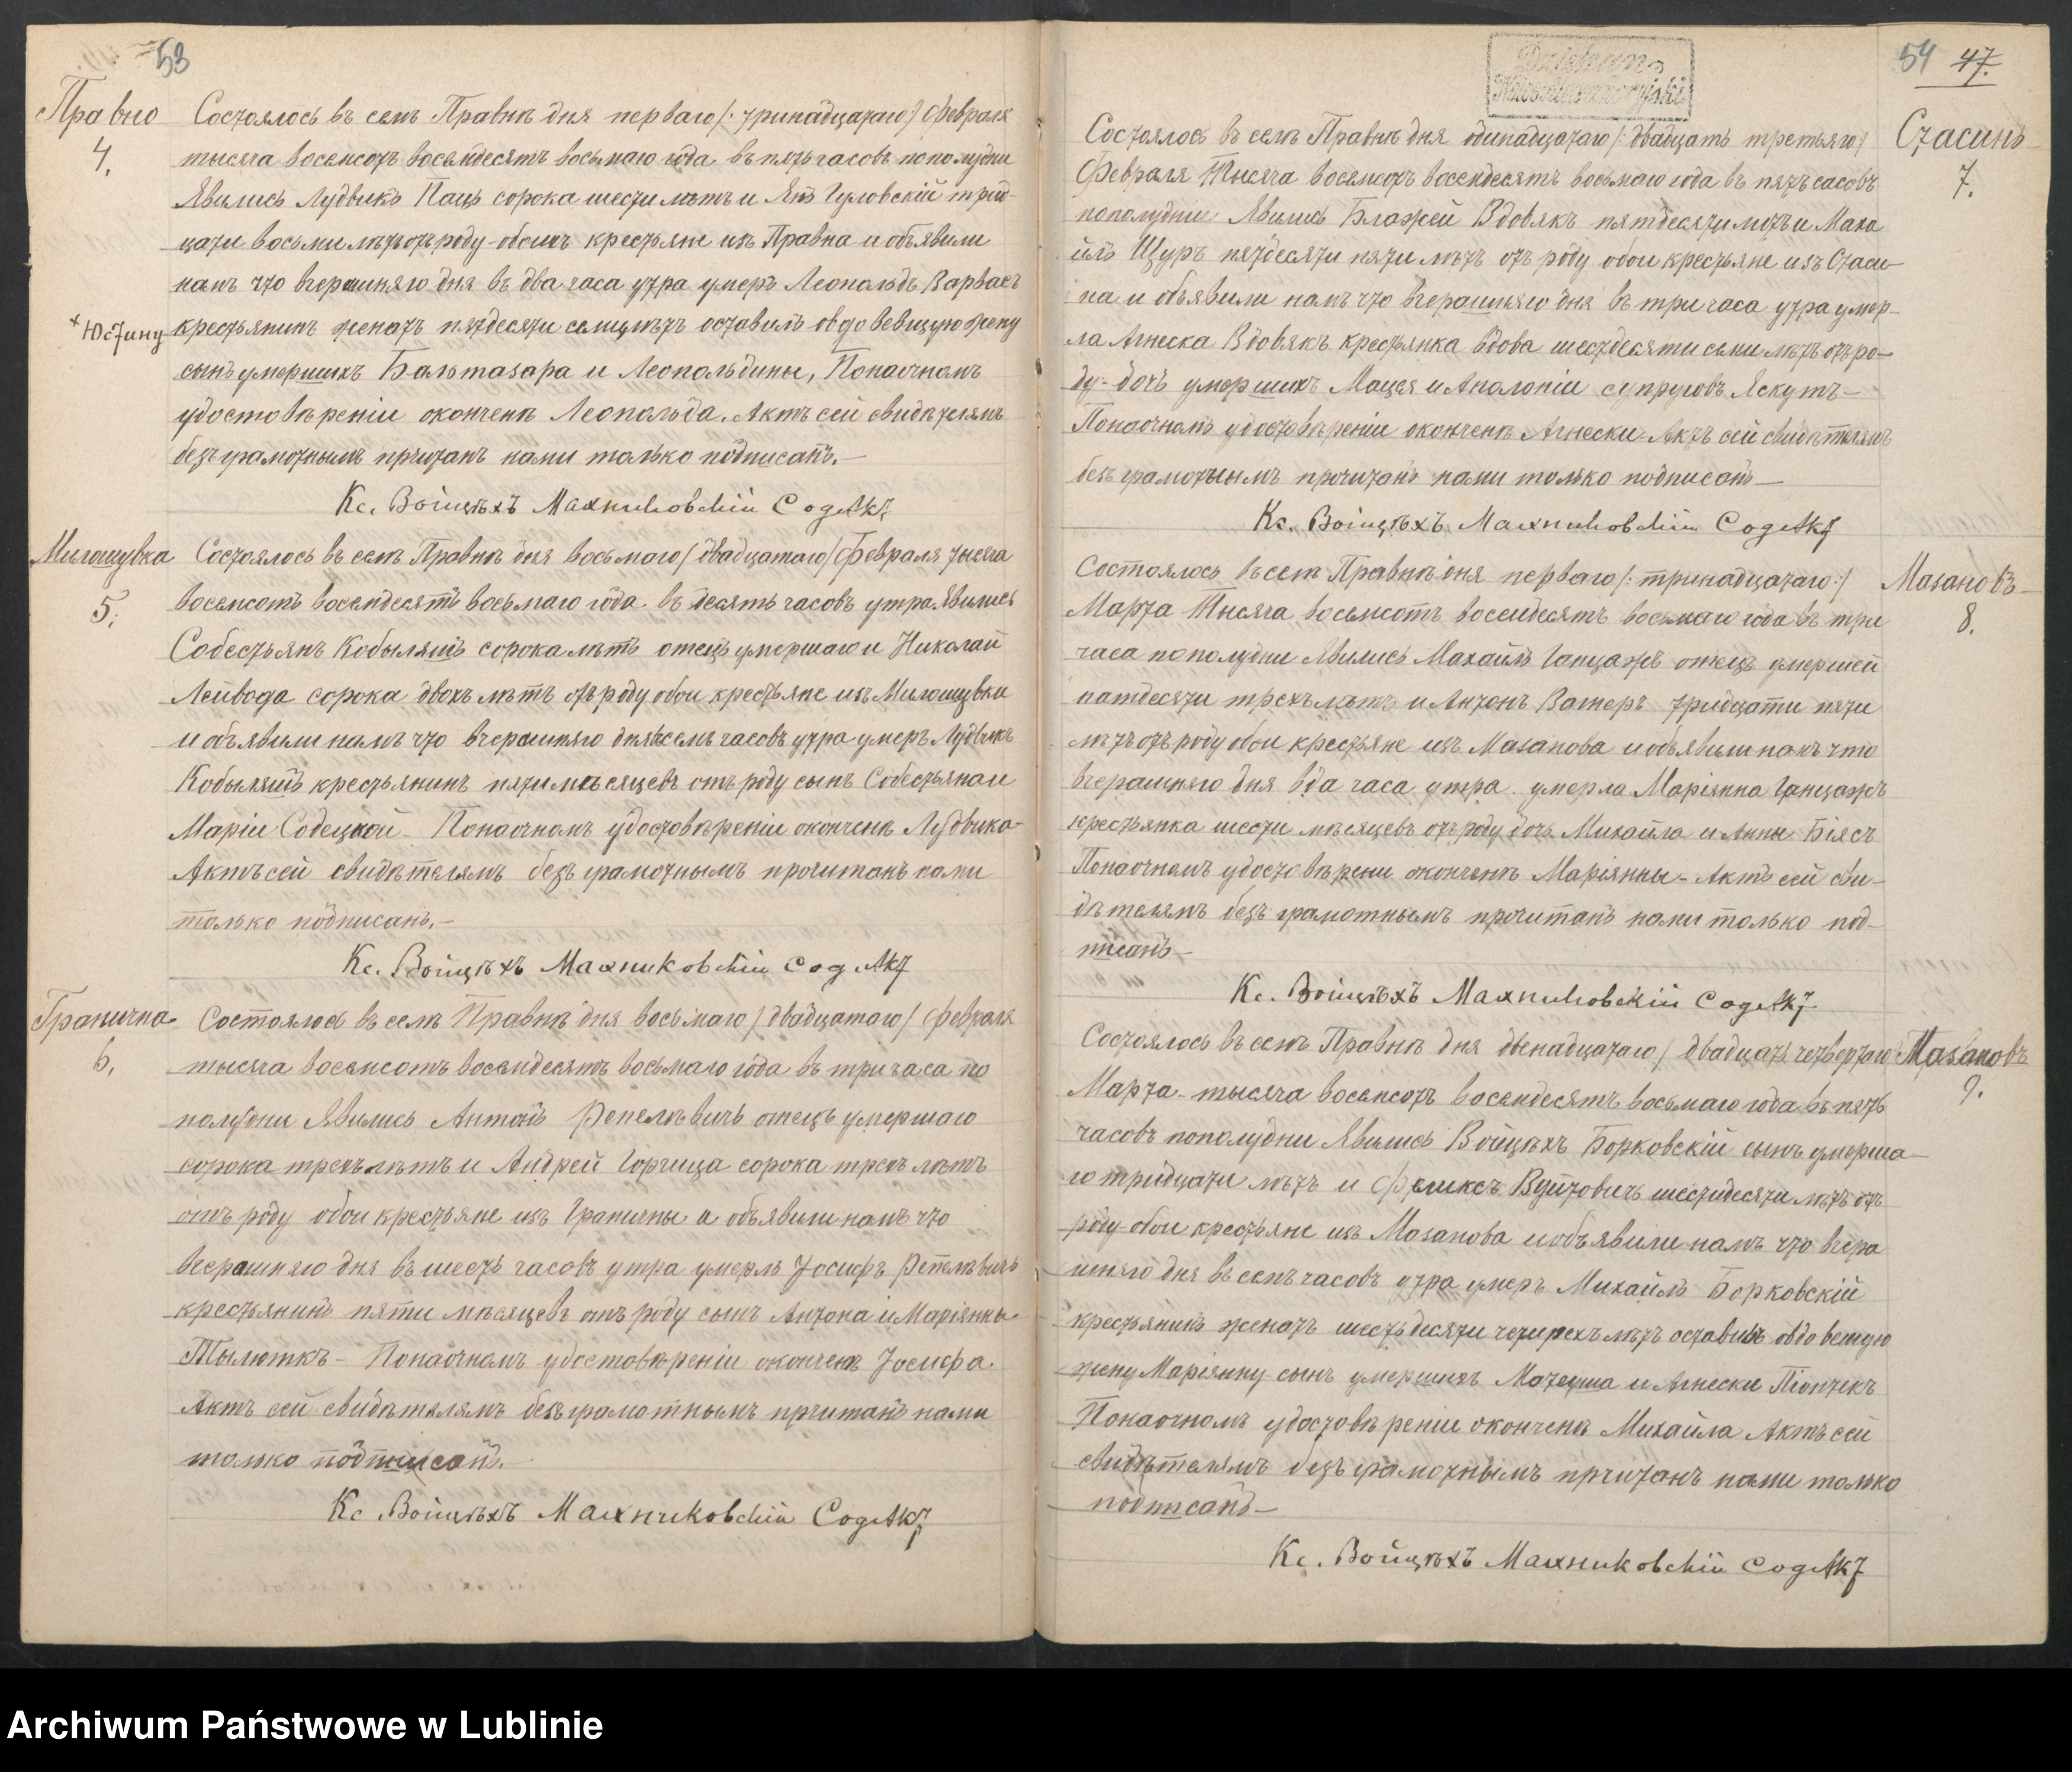 53
Правно
4.
Состоялось въ селѣ Правнѣ дня перваго /: тринадцатаго / Февраля
тысяча восемсотъ восемдесятъ восьмаго года въ пять часовъ пополудни
Явились Лудвикъ Пацъ сорока шести лѣтъ и Янъ Гуловскій трид-
цати восьми лѣтъ отъ роду обоихъ крестьяне изъ Правна и объявили
намъ что вчерашняго дня въ два часа утра умеръ Леопольдъ Варвасъ
крестьянинъ женатъ пятдесяти семи лѣтъ оставивъ овдовевшую жену
+ Юстину
сынъ умершихъ Бальтазара и Леопольдины, Понаочномъ
удостовѣреніи окончеиѣ Леопольда. Актъ сей свидѣтелямъ
безъграмотнымъ прчитанъ нами только подписанъ.—
Кс. Войцѣхъ Махниковскій СодАкт
Милошувка
5.
Состоялось въ селѣ Правнѣ дня восьмаго / двадцатаго / Февраля тысяча
восемсотъ восемдесятъ восьмаго года въ десять часовъ утра Явились
Собестьянъ Кобылятъ сорока лѣтъ отецъ умершаго и Николай
Лейвода сорока двохъ лѣтъ отъ роду обои крестьяне изъ Милошувки
и объявили намъ что вчерашняго дня въ семъ часовъ утра умеръ Лудвикъ
Кобылятъ крестьянинъ пяти мѣсяцевъ отъ роду сынъ Собестьяна и
Маріи Содецкой — Понаочномъ удостовѣреніи окончеиѣ Лудвика—
Актъ сей свидѣтелямъ безъ грамотнымъ прочитанъ нами
только подписанъ.—
Кс. Войцѣхъ Махниковскій Сод Акт
Гранична
6.
Состоялось въ селѣ Правнѣ дня восьмаго / двадцатаго / Февраля
тысяча восемсотъ восемдесятъ восьмаго года въ три часа по
полудни Явились Антонъ Репелѣвичъ отецъ умершаго
сорока трехъ лѣтъ и Андрей Горчица сорока трехъ лѣтъ
отъ роду обои крестьяне изъ Граничны и объявили намъ что
вчерашняго дня въ шесть часовъ утра умерлъ Іосифъ Репелѣвичъ
крестьянинъ пяти мѣсяцевъ отъ роду сынъ Антона и Маріянны
Тылюткъ — Понаочномъ удостовѣреніи окончеиѣ Іосифа.
Актъ сей свидѣтелямъ безъграмотнымъ прчитанъ нами
только подписанъ.
Кс. Войцѣхъ Махниковскій СодАкт
54 47.
Стасинъ
7.
Состоялось въ селѣ Правнѣ дня одинадцатаго /: двадцать третьяго /
Февраля Тысяча восемсотъ восемдесятъ восьмаго года въ пять часовъ
пополудни Явились Блажей Вдовякъ пятдесяти лѣтъ и Миха
илъ Щуръ пятдесяти пяти лѣтъ отъ роду обои крестьяне изъ Стаси-
на и объявили намъ что вчерашняго дня въ три часа утра умер-
ла Агнеска Вдовякъ крестьянка вдова шестдесяти семи лѣтъ отъ ро-
ду- дочь умершихъ Мацея и Аполоніи супруговъ Яскутъ—
Понаочномъ удостовѣреніи окончеиѣ Агнески. Актъ сей свидѣтелямъ
безъ грамотнымъ прочитанъ нами только подписанъ—
Кс. Войцѣхъ Махниковскій СодАкт
Мазановъ
8.
Состоялось въ селѣ Правнѣ дня перваго /: тринадцатаго :/
Марта Тысяча восемсотъ восемдесятъ восьмаго года въ три
часа пополудни Явились Михаилъ Ганцажъ отецъ умершей
пятдесяти трехъ лѣтъ и Антонъ Вагнеръ тридцати пяти
лѣтъ отъ роду обои крестьяне изъ Мазанова и объявили намъ что
вчерашняго дня вда часа утра умерла Маріянна Ганцажъ
крестьянка шести мѣсяцевъ отъ роду дочь Михаила и Анны Біясъ
Понаочномъ удостовѣрени окончеиѣ Маріянны — Актъ сей сви-
дѣтелямъ безъ грамотнымъ прочитанъ нами только под-
писанъ—
Кс. Войцѣхъ Махниковскій СодАкт
Мазановъ
9.
Состоялось въ селѣ Правнѣ дня двенадцатаго / двадцать четвертаго
Марта тысяча восемсотъ восемдесятъ восьмаго года въ пять
часовъ пополудни Явились Войцѣхъ Борковскій сынъ умерша-
го тридцати лѣтъ и Феликсъ Вуйтовичъ шестидесяти лѣтъ отъ
роду обои крестьяне изъ Мазанова и объявили намъ что вчера
шняго дня въ семъ часовъ утра умеръ Михаилъ Борковскій
крестьянинъ женатъ шестьдесяти четирехъ лѣтъ оставивъ овдовешую
жену Маріянну сынъ умершихъ Матеуша и Агнески Піонтекъ
Понаочномъ удостовѣреніи окончеиѣ Михаила Актъ сей
свидѣтелямъ безъ грамотнымъ прчитанъ нами только
подписанъ—
Кс. Войцѣхъ Махниковскій СодАкт
Archiwum Państwowe w Lublinie